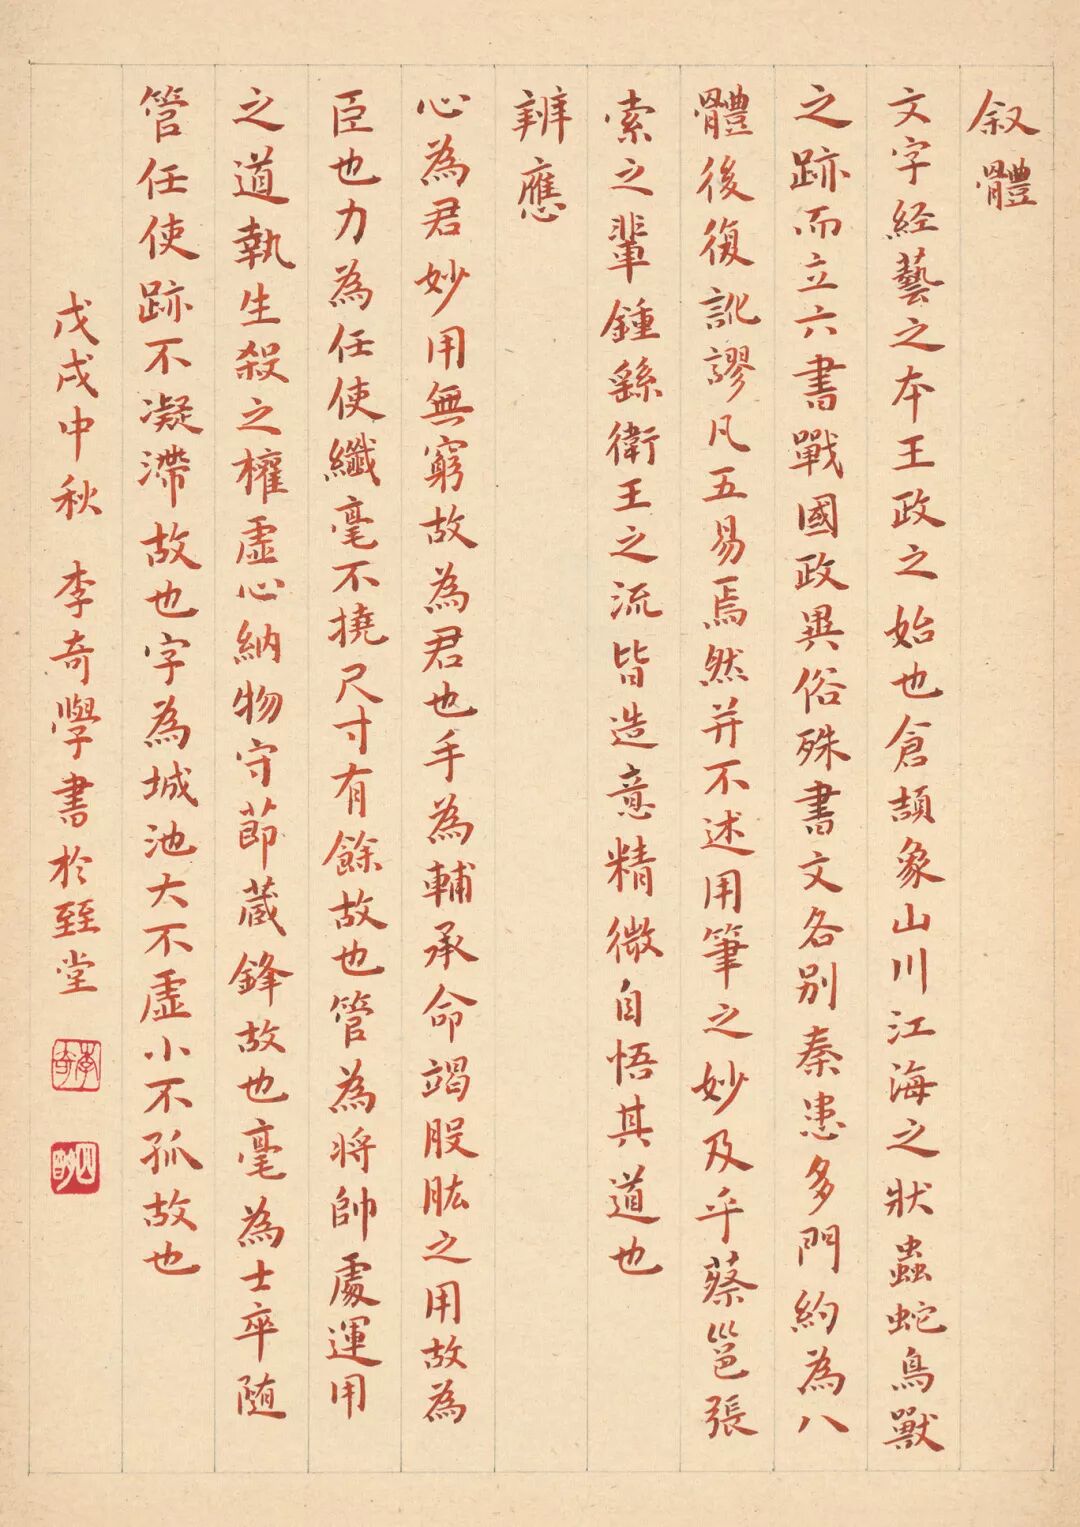 叙體
文字經藝之本王政之始也倉頡象山川江海之狀蟲蛇鳥獸
之跡而立六書戰國政異俗殊書文各別秦患多門約為八
體後復訛謬凡五易焉然并不述用筆之妙及乎蔡邕張
索之輩鍾繇衛王之流皆造意精微自悟其道也
辨應
心為君妙用無窮故為君也手為輔承命竭股肱之用故為
臣也力為任使纖毫不撓尺寸有餘故也管為將帥處運用
之道執生殺之權虛心納物守節藏鋒故也毫為士卒随
管任使跡不凝滯故也字為城池大不虛小不孤故也
戊戌中秋 李奇學書於臸堂
李奇